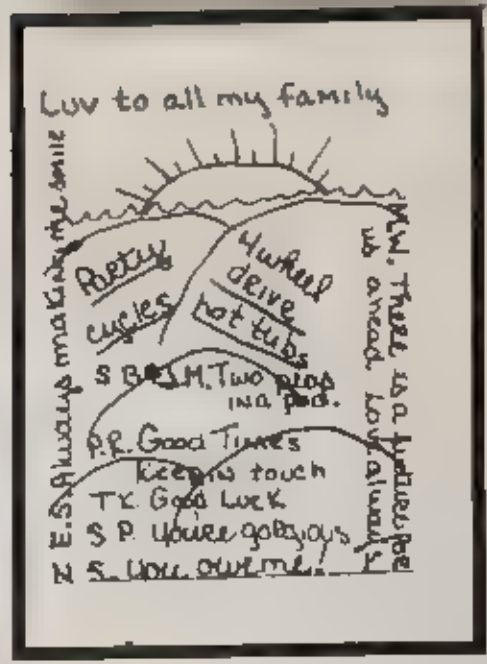 Luv to all my family
E.S. Always making me smile
Poetry
cycles
4wheel
drive
hot tubs
M.W. There is a future for
us ahead Love always
S B & J.M. Two peas
in a pod.
P.R. Good Times
Keep in touch
T.K. Good Luck
S P. You're gorgious
S. you owe me!